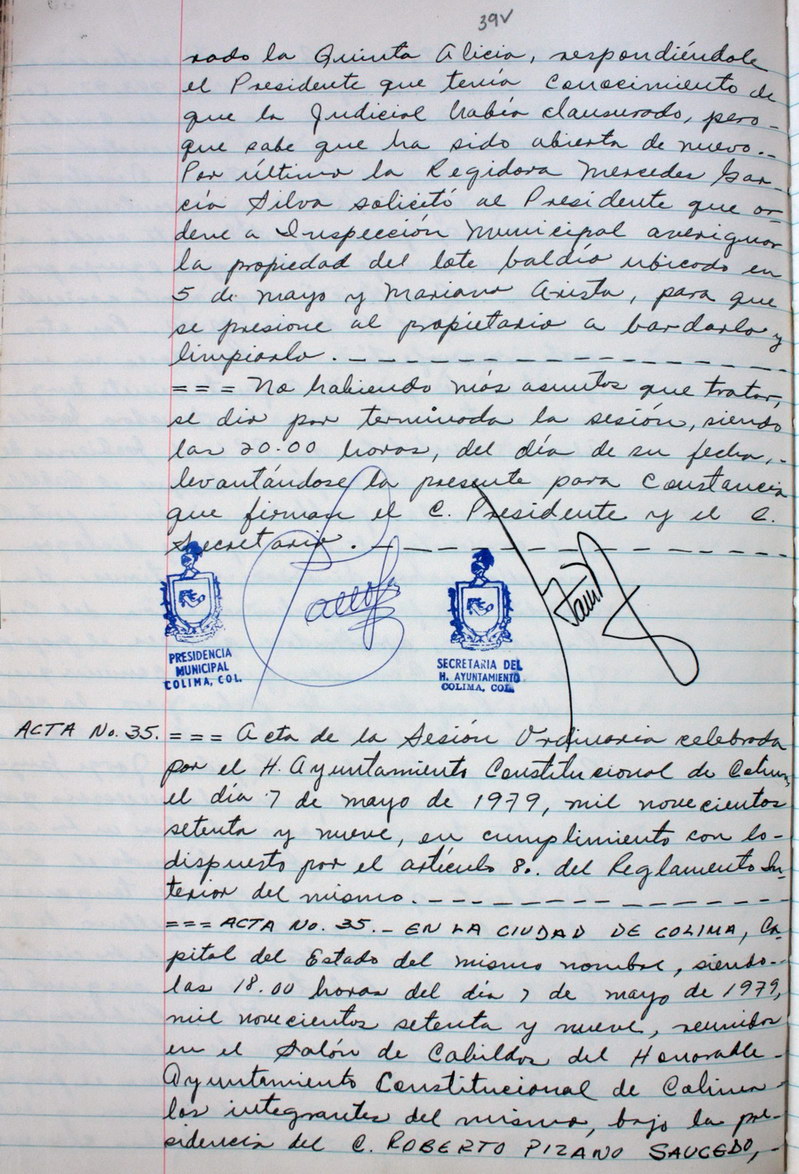 39v
rado la Quinta Alicia, respondiéndole
el Presidente que tenía conocimiento de
que la Judicial había clausurado, pero-
que sabe que ha sido abierta de nuevo.-
Por último la Regidora Mercedes Gar-
cía Silva solicitó al Presidente que or-
dene a Inspección Municipal averiguar
la propiedad del lote baldío ubicado en
5 de mayo y Mariano Arista, para que
se presione al propietario a bardarlo y
limpiarlo.- - - - - - - - - - - - - -
=== No habiendo más asuntos que tratar,
se dio por terminada la sesión, siendo
las 20.00 horas, del día de su fecha,-
levantándose la presente para constancia
que firman el C. Presidente y el C.
Secretario.- - - - - - - - - - - - - -
PRESIDENCIA
MUNICIPAL
COLIMA, COL.
SECRETARIA DEL
H. AYUNTAMIENTO
COLIMA, COL.
ACTA No. 35. === Acta de la Sesión Ordinaria celebrada
por el H. Ayuntamiento Constitucional de Colima,
el día 7 de mayo de 1979, mil novecientos
setenta y nueve, en cumplimiento con lo-
dispuesto por el artículo 8o. del Reglamento In-
terior del mismo.- - - - - - - - - - - -
=== ACTA No. 35.- EN LA CIUDAD DE COLIMA, Ca-
pital del Estado del mismo nombre, siendo-
las 18.00 horas del día 7 de mayo de 1979,
mil novecientos setenta y nueve, reunidos
en el Salón de Cabildos del Honorable-
Ayuntamiento Constitucional de Colima-
los integrantes del mismo, bajo la pre-
sidencia del C. ROBERTO PIZANO SAUCEDO,-